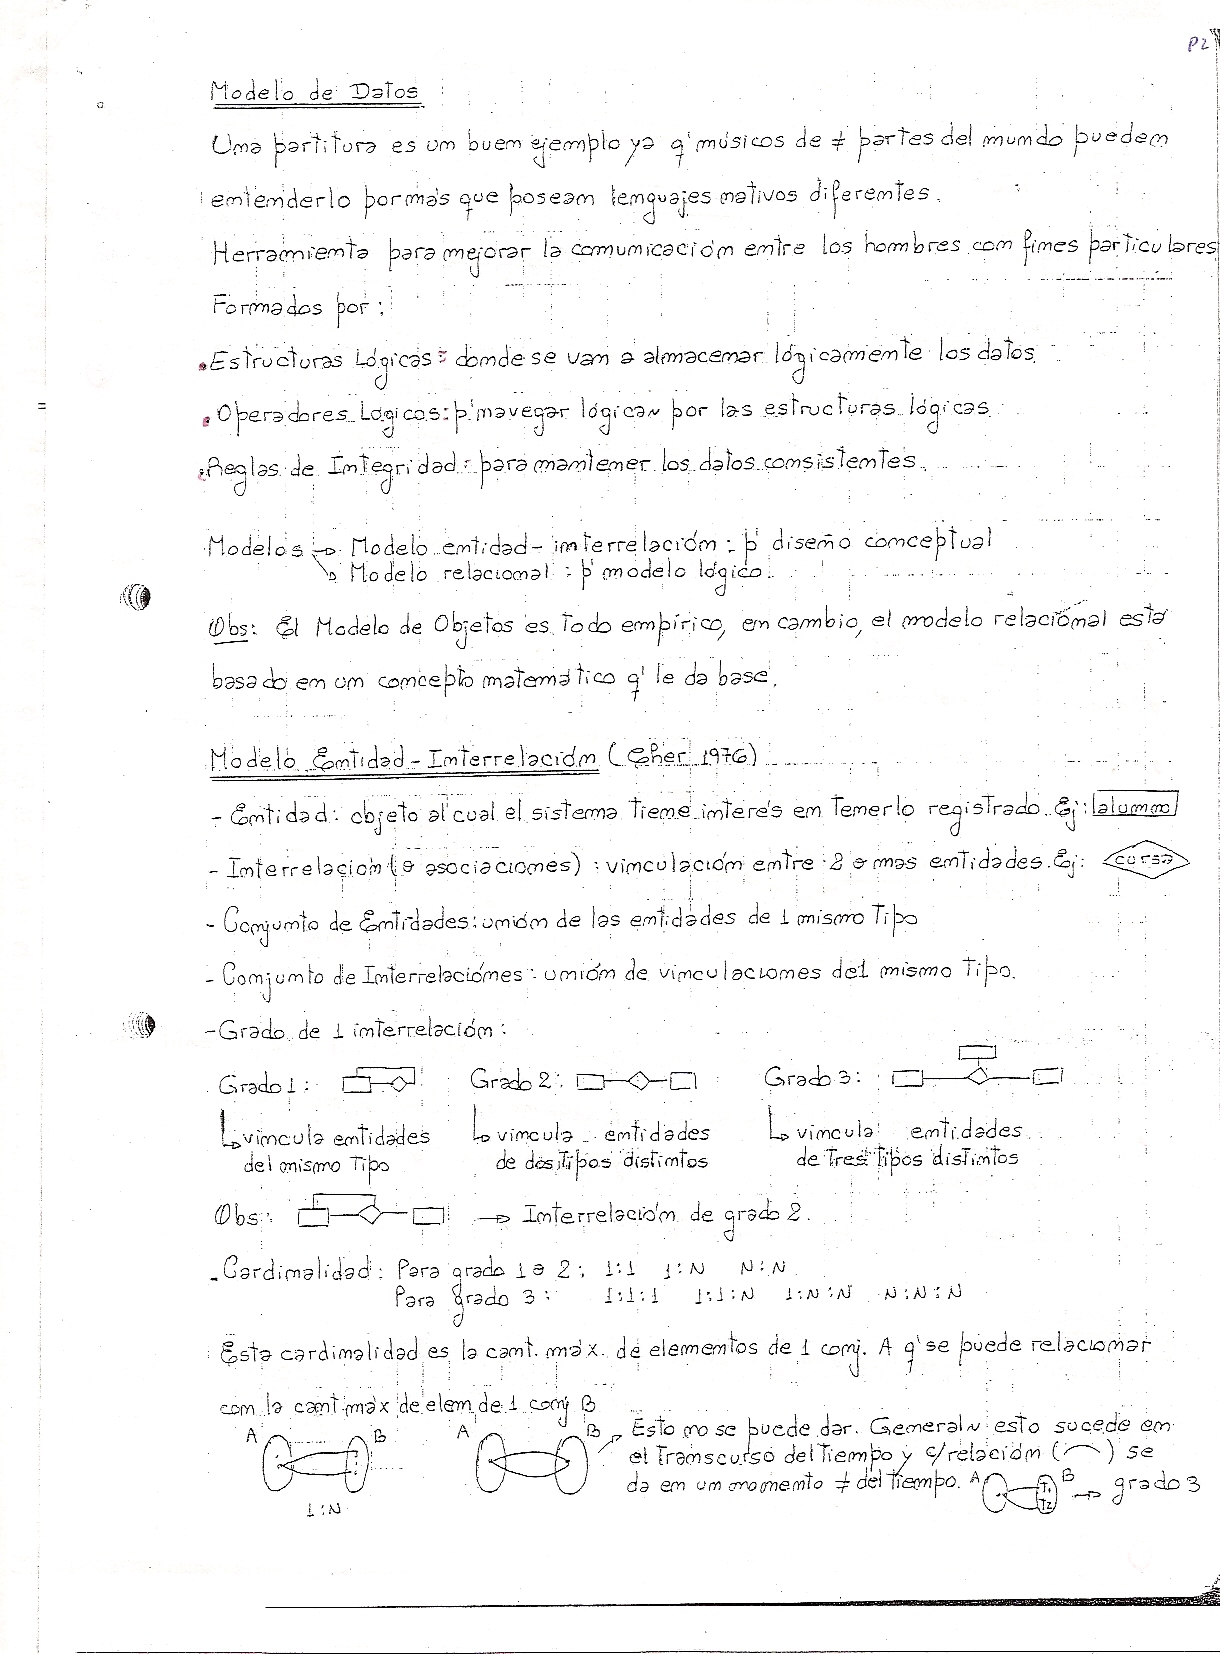 P2
Modelo de Datos
Una partitura es un buen ejemplo ya q' músicos de ≠ partes del mundo pueden
entenderlo por más que posean lenguajes nativos diferentes.
Herramienta para mejorar la comunicación entre los hombres con fines particulares
Formados por:
• Estructuras Lógicas: donde se van a almacenar lógicamente los datos.
• Operadores Lógicos: p' navegar lógica~ por las estructuras lógicas.
• Reglas de Integridad: para mantener los datos consistentes.
Modelos → Modelo entidad-interrelación: p' diseño conceptual
→ Modelo relacional: p' modelo lógico.
Obs: El Modelo de Objetos es todo empírico, en cambio, el modelo relacional está
basado en un concepto matemático q' le da base.
Modelo Entidad-Interrelación (Cher 1976)
- Entidad: objeto al cual el sistema tiene interés en tenerlo registrado. Ej: alumno
- Interrelación (o asociaciones): vinculación entre 2 o mas entidades. Ej: cursa
- Conjunto de Entidades: unión de las entidades de 1 mismo tipo
- Conjunto de Interrelaciónes: unión de vinculaciones de 1 mismo tipo.
- Grado de 1 interrelación:
Grado 1: Grado 2: Grado 3:
↳ vincula entidades ↳ vincula entidades ↳ vincula entidades
del mismo tipo de dos tipos distintos de tres tipos distintos
Obs: → Interrelación de grado 2.
- Cardinalidad: Para grado 1 o 2: 1:1 1:N N:N
Para grado 3: 1:1:1 1:1:N 1:N:N N:N:N
Esta cardinalidad es la cant. máx. de elementos de 1 conj. A q' se puede relacionar
con la cant máx de elem de 1 conj B
A B A B → Esto no se puede dar. General~ esto sucede en
el transcurso del tiempo y c/relación (⌒) se
da en un momento ≠ del tiempo. A T1 T2 B → grado 3
1:N